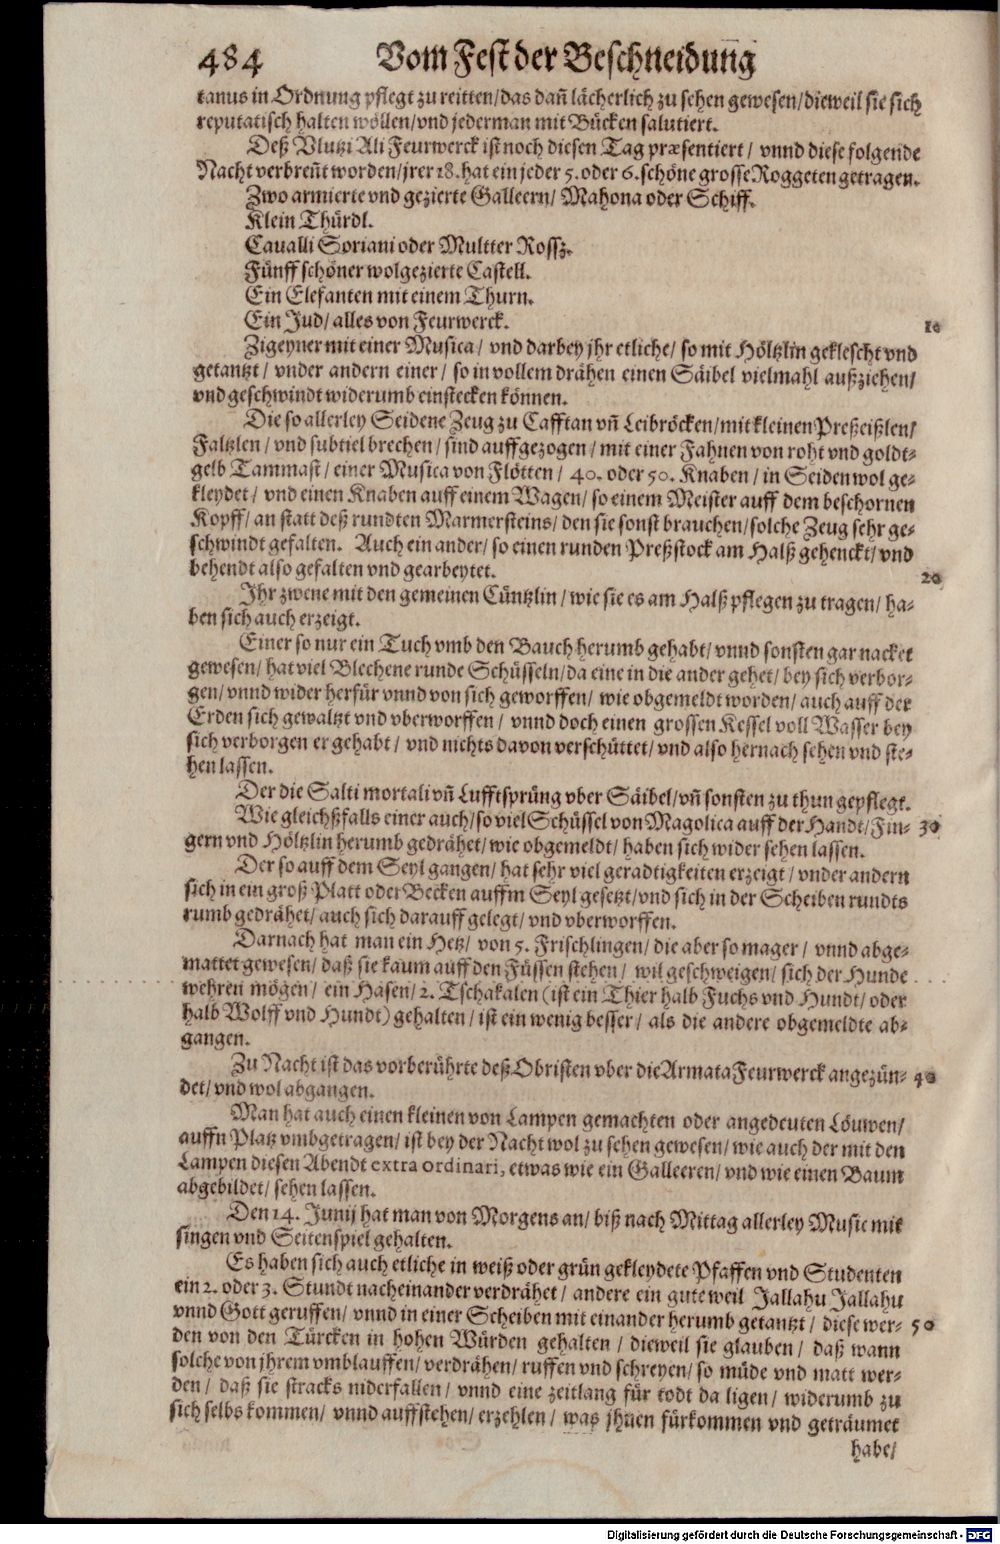 484 Vom Fest der Beschneidung̃
tanus in Ordnung pflegt zu reitten/das dañ lächerlich zu sehen gewesen/dieweil sie sich
reputatisch halten wöllen/vnd jederman mit Bücken salutiert.
Deß Vlutzi Ali Feurwerck ist noch diesen Tag præsentiert/ vnnd diese folgende
Nacht verbreñt worden/jrer 18. hat ein jeder 5. oder 6. schöne grosse Roggeten getragen.
Zwo armierte vnd gezierte Galleern/ Mahona oder Schiff.
Klein Thürdl.
Cavalli Soriani oder Multter Rossz.
Fünff schöner wolgezierte Castell.
Ein Elefanten mit einem Thurn.
Ein Jud/ alles von Feurwerck. 10
Zigeyner mit einer Musica/ vnd darbey jhr etliche/ so mit Höltzlin geklescht vnd
getantzt/ vnder andern einer/ so in vollem drähen einen Säibel vielmahl außziehen/
vnd geschwindt widerumb einstecken können.
Die so allerley Seidene Zeug zu Cafftan vñ Leibröcken/mit kleinen Preßeißlen/
Faltzlen/ vnd subtiel brechen/ sind auffgezogen/ mit einer Fahnen von roht vnd goldt-
gelb Tammast/ einer Musica von Flötten/ 40. oder 50. Knaben/ in Seiden wol ge-
kleydet/ vnd einen Knaben auff einem Wagen/ so einem Meister auff dem beschornen
Kopff/ an statt deß rundten Marmersteins/ den sie sonst brauchen/solche Zeug sehr ge-
schwindt gefalten. Auch ein ander/ so einen runden Preßstock am Halß gehenckt/ vnd
behendt also gefalten vnd gearbeytet. 20
Ihr zwene mit den gemeinen Cüntzlin/ wie sie es am Halß pflegen zu tragen/ ha-
ben sich auch erzeigt.
Einer so nur ein Tuch vmb den Bauch herumb gehabt/ vnnd sonsten gar nacket
gewesen/ hat viel Blechene runde Schüsseln/da eine in die ander gehet/ bey sich verbor-
gen/ vnnd wider herfür vnnd von sich geworffen/ wie obgemeldt worden/ auch auff der
Erden sich gewaltzt vnd vberworffen/ vnnd doch einen grossen Kessel voll Wasser bey
sich verborgen er gehabt/ vnd nichts davon verschüttet/ vnd also hernach sehen vnd ste-
hen lassen.
Der die Salti mortali vñ Lufftsprüng vber Säibel/vñ sonsten zu thun gepflegt.
Wie gleichßfalls einer auch/so viel Schüssel von Magolica auff der Handt/Fin- 30
gern vnd Höltzlin herumb gedrähet/ wie obgemeldt/ haben sich wider sehen lassen.
Der so auff dem Seyl gangen/ hat sehr viel geradtigkeiten erzeigt/ vnder andern
sich in ein groß Platt oder Becken auffm Seyl gesetzt/vnd sich in der Scheiben rundts
rumb gedrähet/ auch sich darauff gelegt/ vnd vberworffen.
Darnach hat man ein Hetz/ von 5. Frischlingen/ die aber so mager/ vnnd abge-
mattet gewesen/ daß sie kaum auff den Füssen stehen/ wil geschweigen/ sich der Hunde
wehren mögen/ ein Hasen/ 2. Tschakalen (ist ein Thier halb Fuchs vnd Hundt/ oder
halb Wolff vnd Hundt) gehalten/ ist ein wenig besser/ als die andere obgemeldte ab-
gangen.
Zu Nacht ist das vorberührte deß Obristen vber die Armata Feurwerck angezün- 40
det/ vnd wol abgangen.
Man hat auch einen kleinen von Lampen gemachten oder angedeuten Löuwen/
auffn Platz vmbgetragen/ ist bey der Nacht wol zu sehen gewesen/ wie auch der mit den
Lampen diesen Abendt extra ordinari, etwas wie ein Galleeren/ vnd wie einen Baum
abgebildet/ sehen lassen.
Den 14. Junij hat man von Morgens an/ biß nach Mittag allerley Music mit
singen vnd Seitenspiel gehalten.
Es haben sich auch etliche in weiß oder grün gekleydete Pfaffen vnd Studenten
ein 2. oder 3. Stundt nacheinander verdrähet/ andere ein gute weil Jallahu Jallahu
vnnd Gott geruffen/ vnnd in einer Scheiben mit einander herumb getantzt/ diese wer- 50
den von den Türcken in hohen Würden gehalten/ dieweil sie glauben/ daß wann
solche von jhrem vmblauffen/ verdrähen/ ruffen vnd schreyen/ so müde vnd matt wer-
den/ daß sie stracks niderfallen/ vnnd eine zeitlang für todt da ligen/ widerumb zu
sich selbs kommen/ vnnd auffstehen/ erzehlen/ was jhnen fürkommen vnd geträumet
habe/
Digitalisierung gefördert durch die Deutsche Forschungsgemeinschaft - DFG